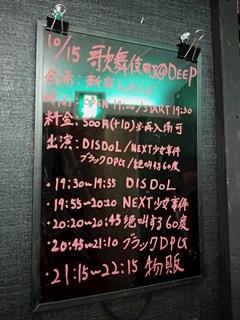 10/15 歌舞伎町@DEEP
会場:新宿
時間:OPEN 19:00/START 19:30
料金:500円(+1D)
出演:DISDOL/NEXT少女事件
ブラックDPG/絶叫する60度
・19:30~19:55 DISDOL
・19:55~20:20 NEXT少女事件
・20:20~20:45 絶叫する60度
・20:45~21:10 ブラックDPG
・21:15~22:15 物販